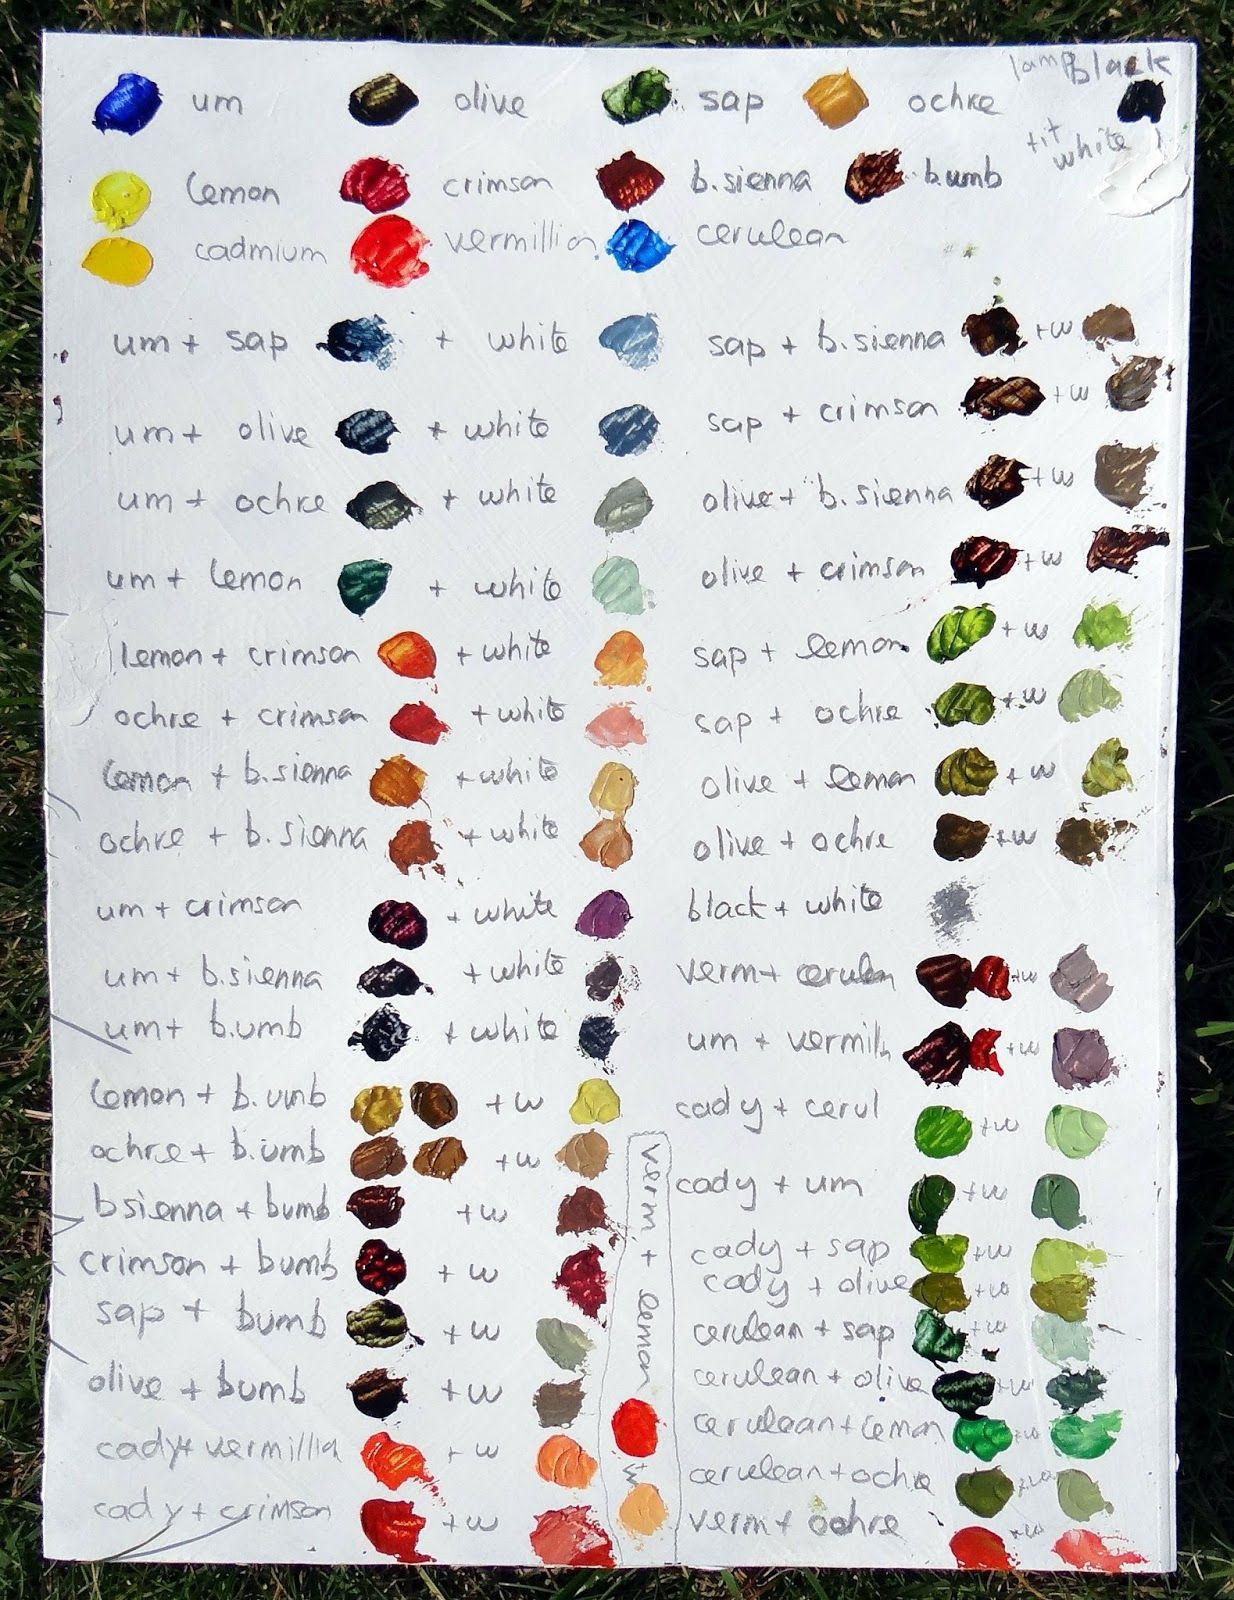 lamp black
um olive sap ochre
tit white
lemon crimson b.sienna b.umb
cadmium vermillion cerulean
um + sap + white
um + olive + white
um + ochre + white
um + lemon + white
lemon + crimson + white
ochre + crimson + white
lemon + b.sienna + white
ochre + b.sienna + white
um + crimson + white
um + b.sienna + white
um + b.umb + white
lemon + b.umb + w
ochre + b.umb + w
bsienna + bumb + w
crimson + bumb + w
sap + bumb + w
olive + bumb + w
cady + vermillia + w
cady + crimson + w
verm + lemon + w
sap + b.sienna + w
sap + crimson + w
olive + b.sienna + w
olive + crimson + w
sap + lemon + w
sap + ochre + w
olive + lemon + w
olive + ochre + w
black + white
verm + cerulen + w
um + vermilln + w
cady + cerul + w
cady + um + w
cady + sap + w
cady + olive + w
cerulean + sap + w
cerulean + olive + w
cerulean + lemon + w
cerulean + ochre + w
verm + ochre + w